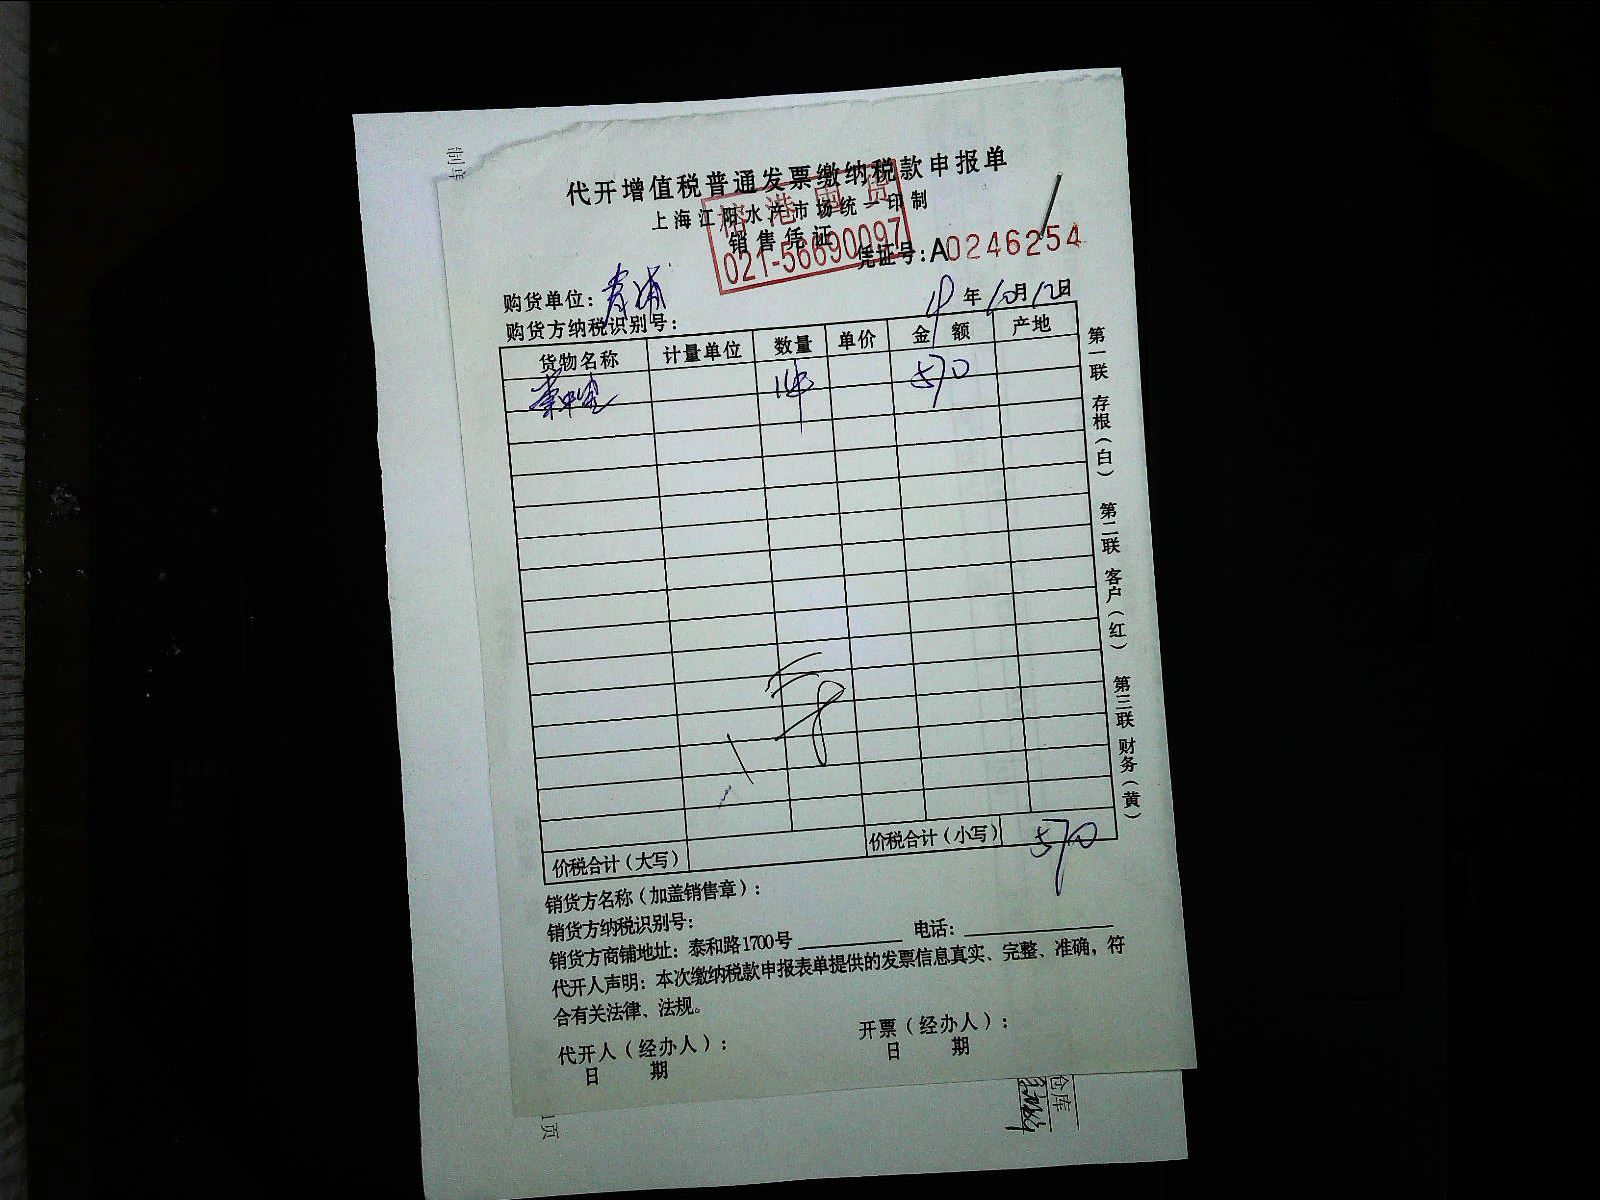 代开增值税普通发票缴纳税款申报单
上海江阳水产市场统一印制
销售凭证
港 货
021-56690097
凭证号:A0246254
购货单位: 青浦
19年10月12日
购货方纳税识别号:
货物名称 计量单位 数量 单价 金额 产地
1件 570
价税合计(大写) 价税合计(小写) 570
销货方名称(加盖销售章):
销货方纳税识别号:
销货方商铺地址: 泰和路1700号 电话:
代开人声明: 本次缴纳税款申报表单提供的发票信息真实、完整、准确,符
合有关法律、法规。
代开人(经办人): 开票(经办人):
日 期 日 期
第一联 存根(白) 第二联 客户(红) 第三联 财务(黄)
制单
仓库
1页